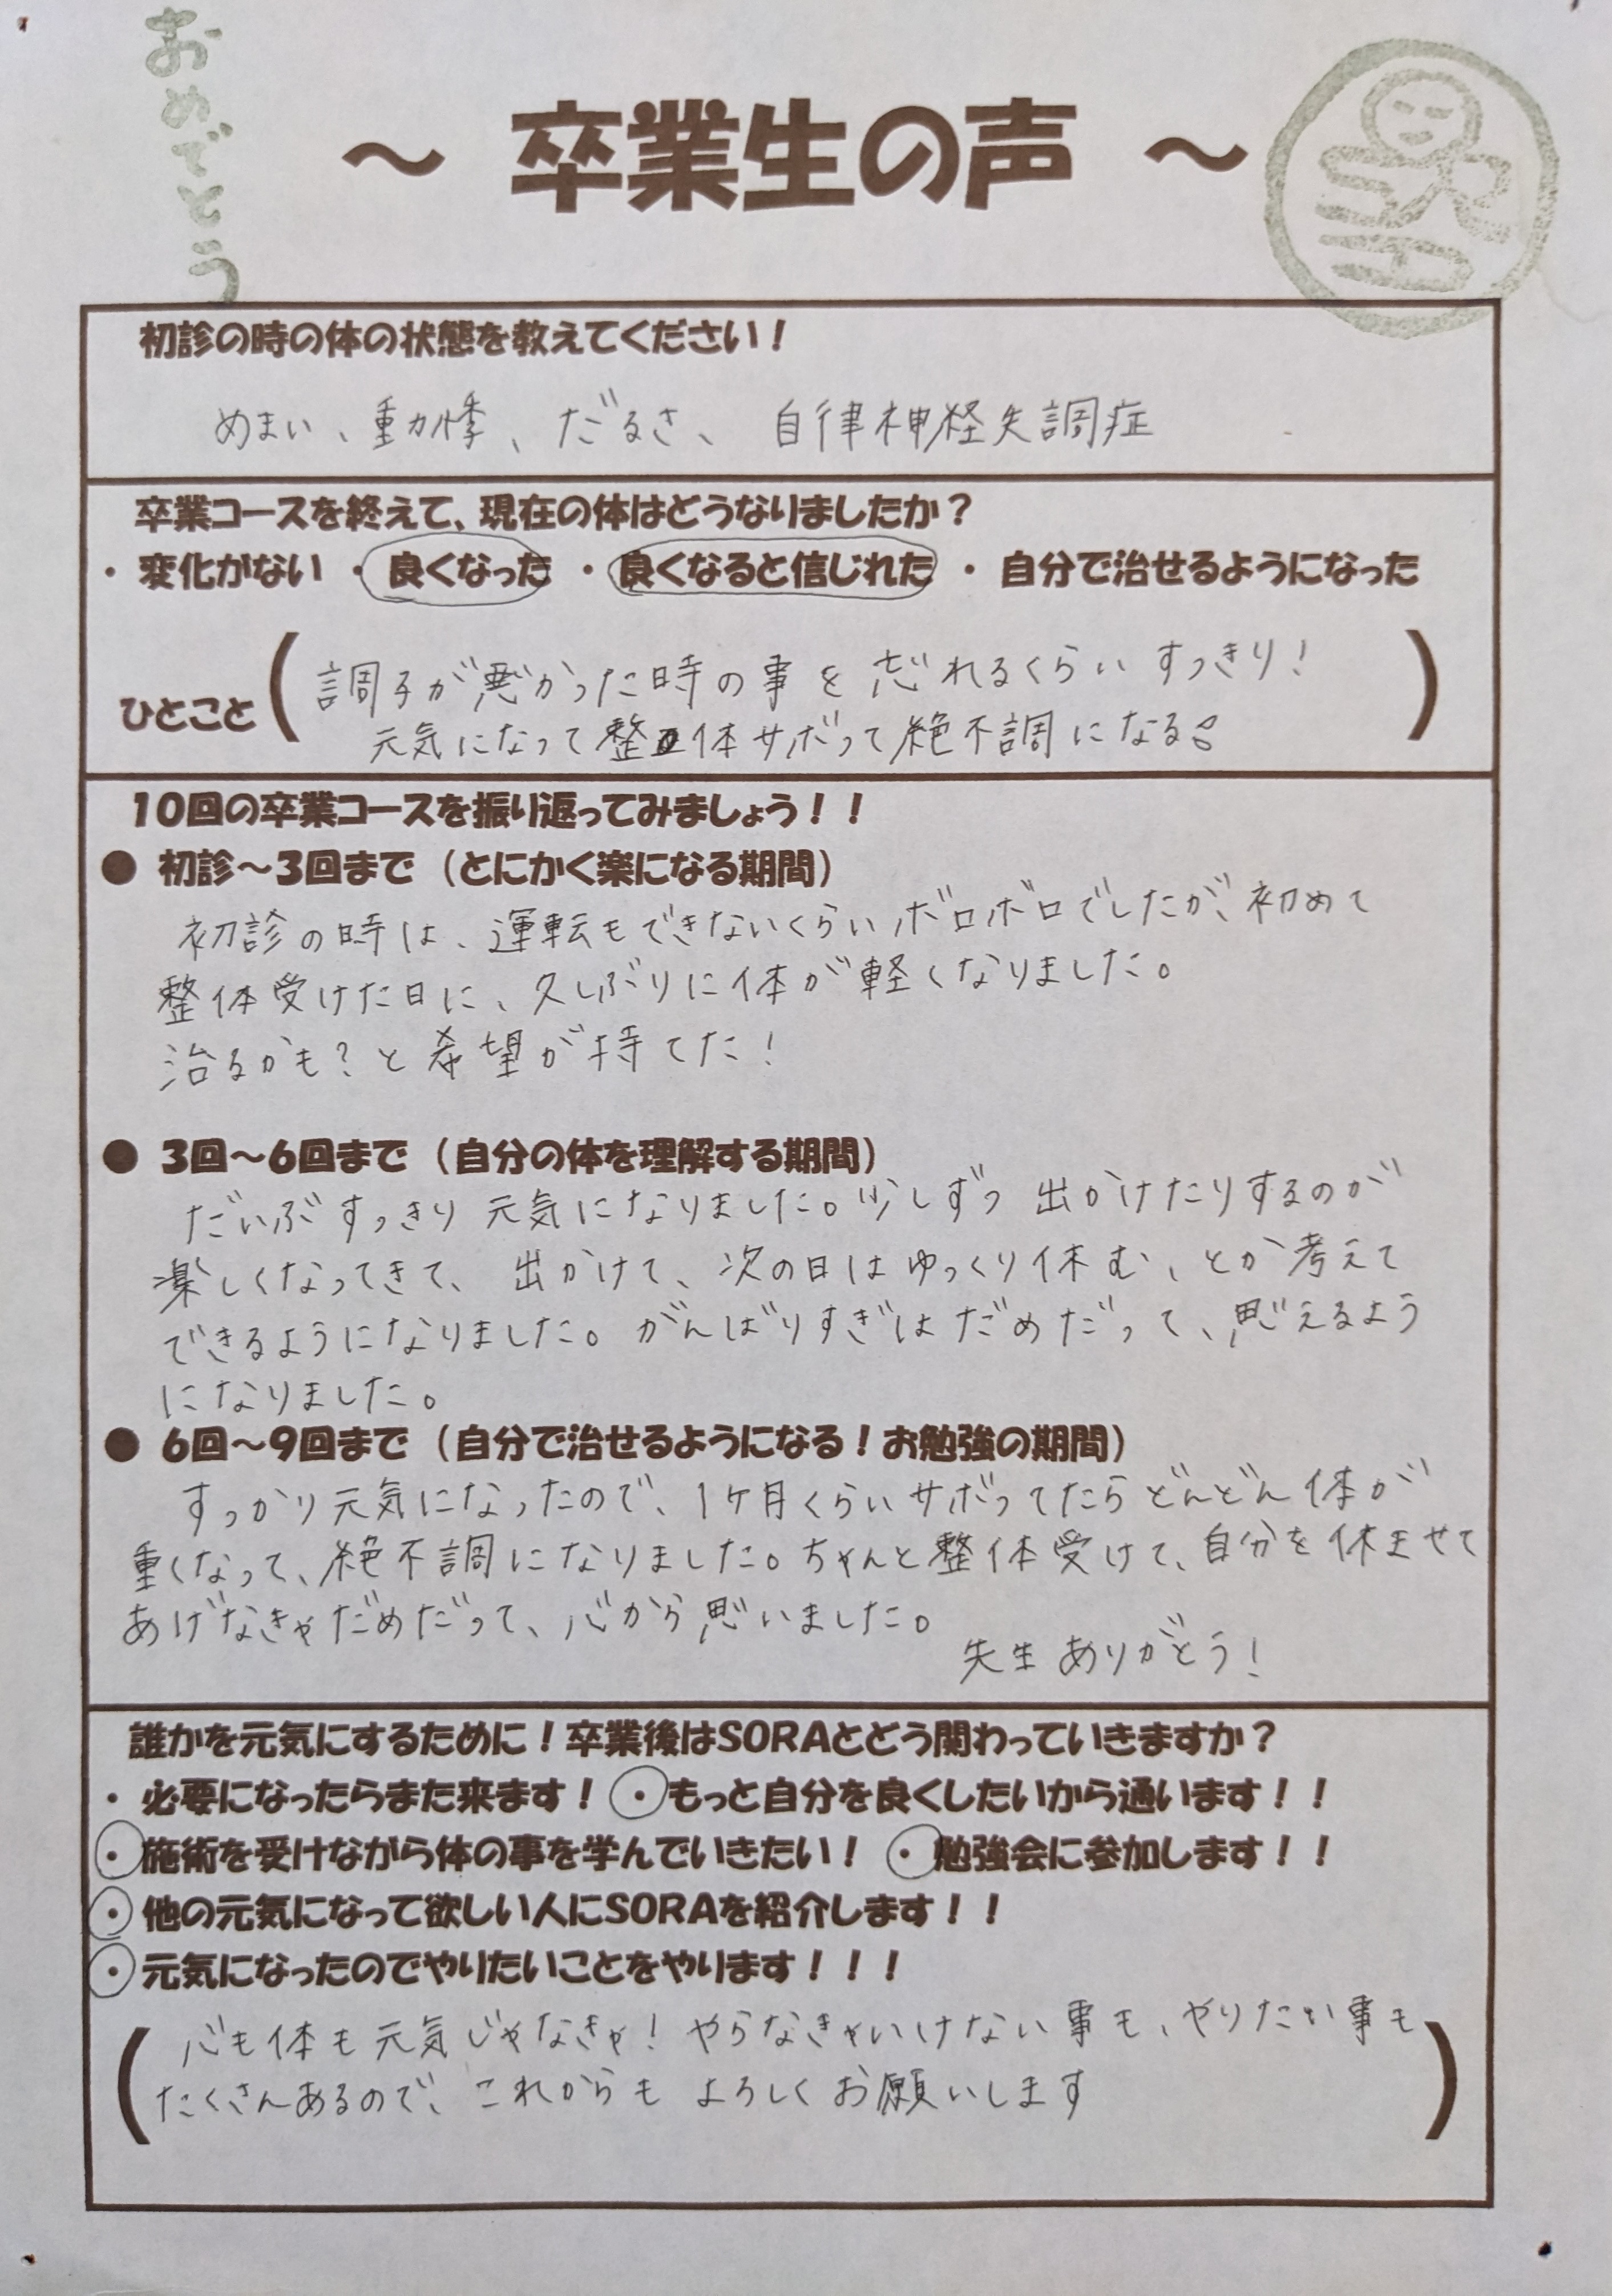 おめでとう
～ 卒業生の声 ～
初診の時の体の状態を教えてください！
めまい、動悸、だるさ、自律神経失調症
卒業コースを終えて、現在の体はどうなりましたか？
・変化がない ・良くなった ・良くなると信じれた ・自分で治せるようになった
調子が悪かった時の事を忘れるくらいすっきり！
ひとこと
元気になって整体サボって絶不調になる
10回の卒業コースを振り返ってみましょう！！
● 初診～3回まで（とにかく楽になる期間）
初診の時は、運転もできないくらいボロボロでしたが、初めて
整体受けた日に、久しぶりに体が軽くなりました。
治るかも？と希望が持てた！
● 3回～6回まで（自分の体を理解する期間）
だいぶすっきり元気になりました。少しずつ出かけたりするのが
楽しくなってきて、出かけて、次の日はゆっくり休む、とか考えて
できるようになりました。がんばりすぎはだめだって、思えるよう
になりました。
● 6回～9回まで（自分で治せるようになる！お勉強の期間）
すっかり元気になったので、1ヶ月くらいサボってたらどんどん体が
重くなって、絶不調になりました。ちゃんと整体受けて、自分を休ませて
あげなきゃだめだって、心から思いました。
先生ありがとう！
誰かを元気にするために！卒業後はSORAとどう関わっていきますか？
・必要になったらまた来ます！ ・もっと自分を良くしたいから通います！！
・施術を受けながら体の事を学んでいきたい！ ・勉強会に参加します！！
・他の元気になって欲しい人にSORAを紹介します！！
・元気になったのでやりたいことをやります！！！
（心も体も元気じゃなきゃ！やらなきゃいけない事も、やりたい事も
たくさんあるので、これからもよろしくお願いします）